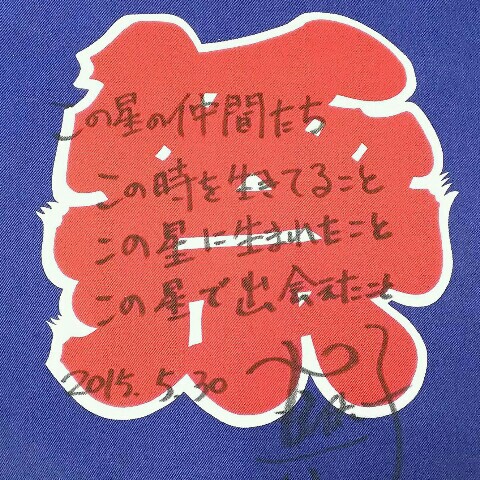 祭
この星の仲間たち
この時を生きてること
この星に生まれたこと
この星で出会えたこと
2015.5.30